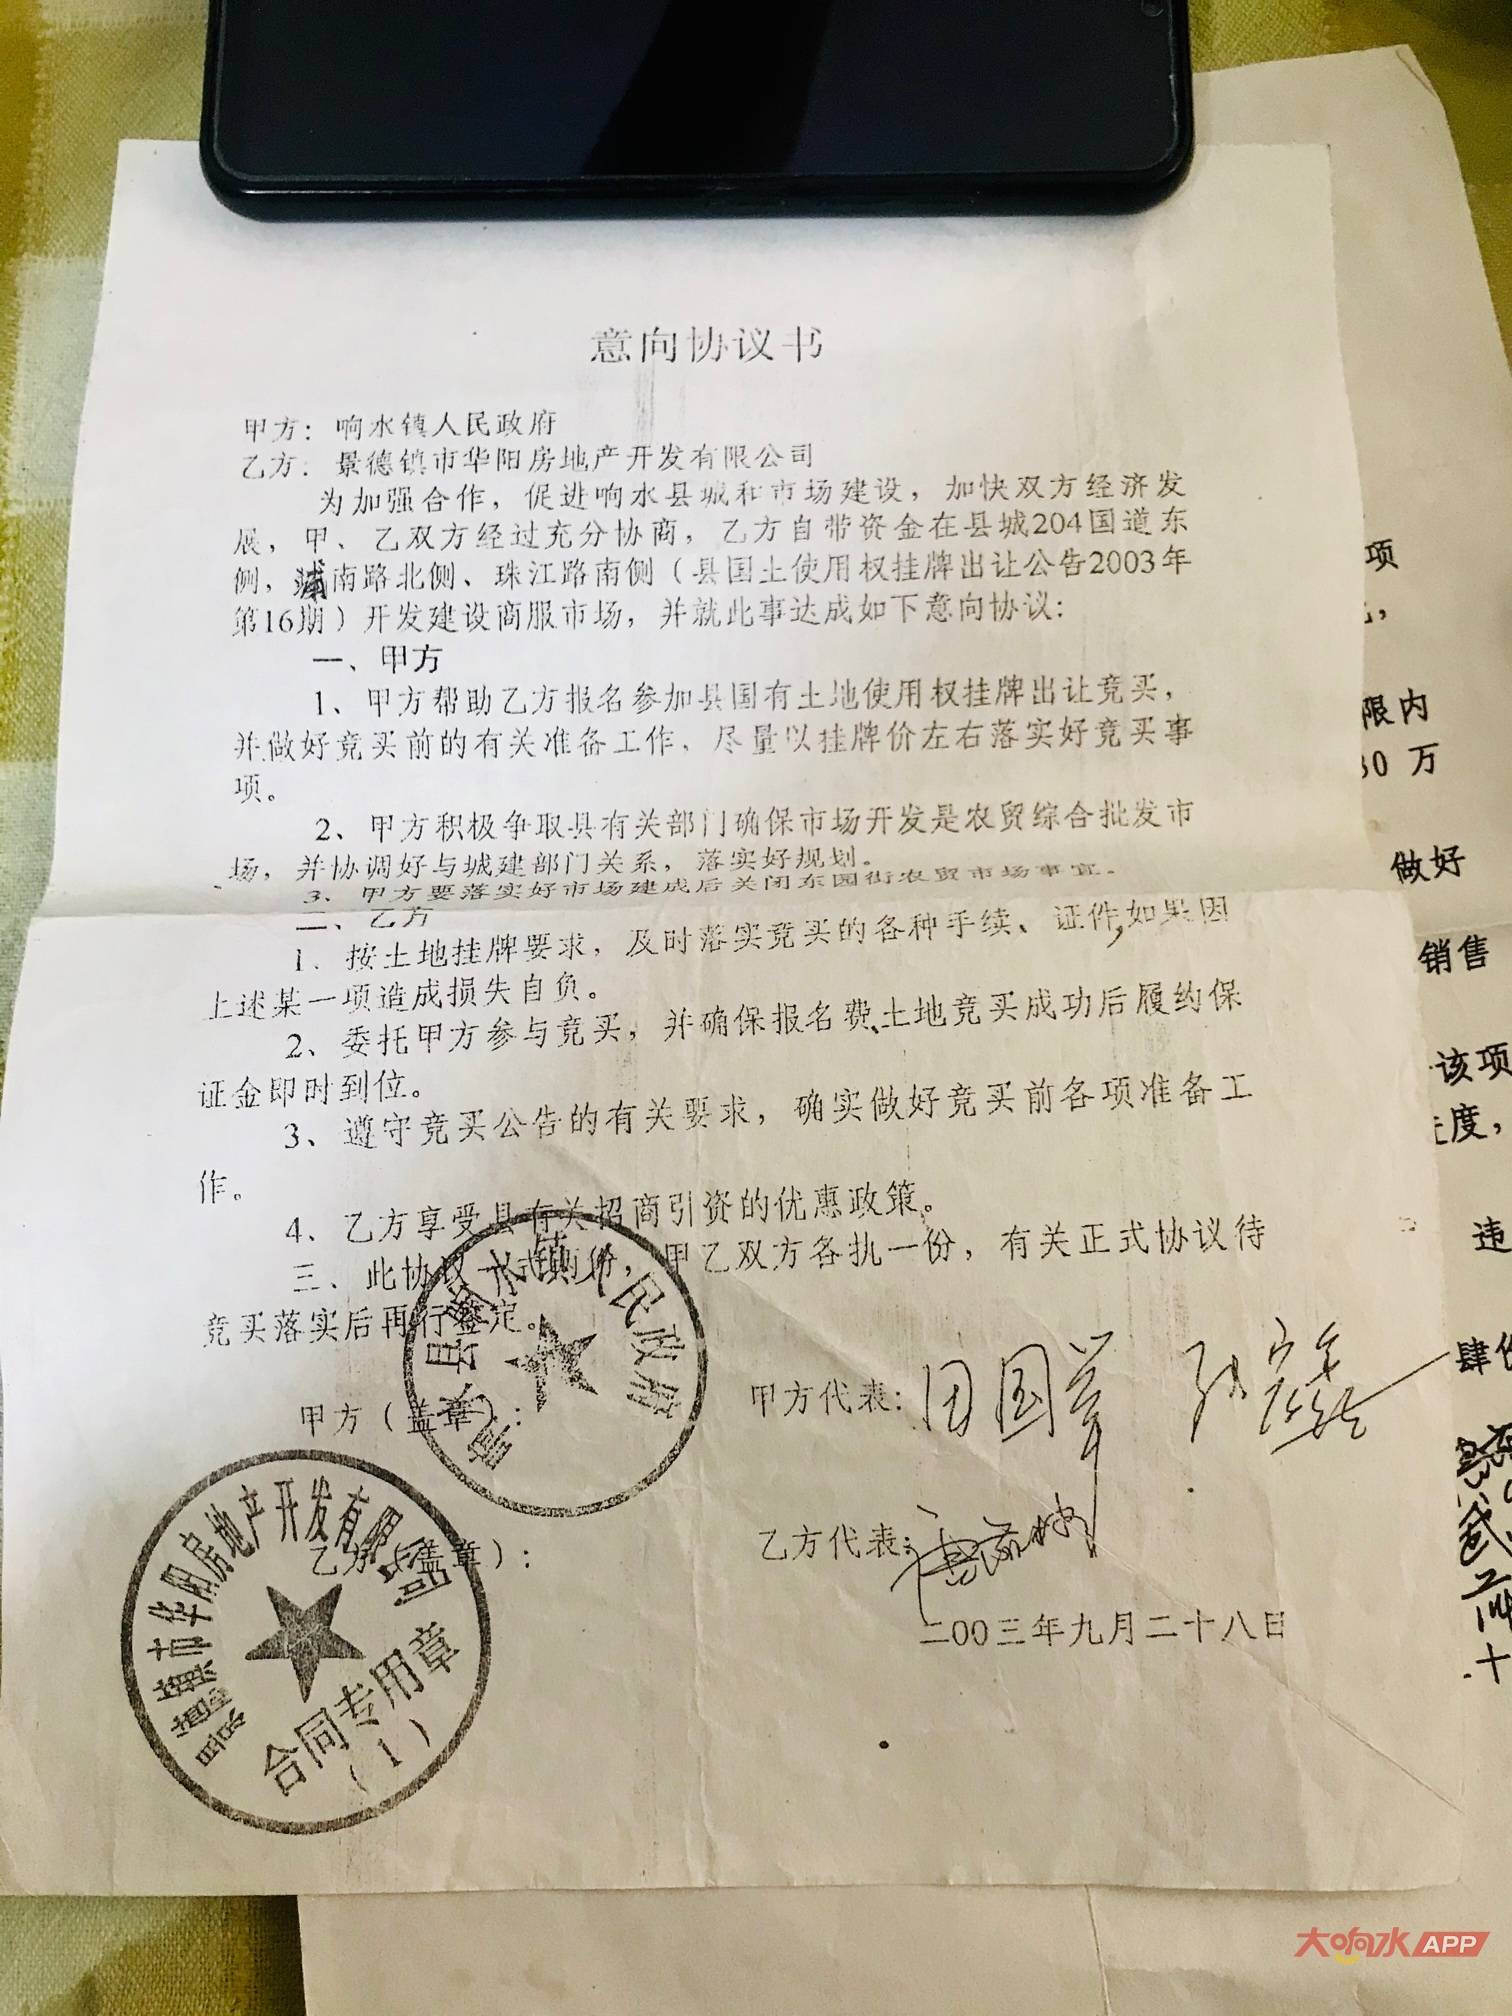 意向协议书
甲方：响水镇人民政府
乙方：景德镇市华阳房地产开发有限公司
为加强合作，促进响水县城和市场建设，加快双方经济发
展，甲、乙双方经过充分协商，乙方自带资金在县城204国道东
侧，南路北侧、珠江路南侧（县国土使用权挂牌出让公告2003年
第16期）开发建设商服市场，并就此事达成如下意向协议：
一、甲方
1、甲方帮助乙方报名参加县国有土地使用权挂牌出让竞买，
并做好竞买前的有关准备工作，尽量以挂牌价左右落实好竞买事
项。
2、甲方积极争取县有关部门确保市场开发是农贸综合批发市
场，并协调好与城建部门关系，落实好规划。
3、甲方要落实好市场建成后关闭东园街农贸市场事宜。
二、乙方
1、按土地挂牌要求，及时落实竞买的各种手续、证件，如果因
上述某一项造成损失自负。
2、委托甲方参与竞买，并确保报名费、土地竞买成功后履约保
证金即时到位。
3、遵守竞买公告的有关要求，确实做好竞买前各项准备工
作。
4、乙方享受县有关招商引资的优惠政策。
三、此协议一式两份，甲乙双方各执一份，有关正式协议待
竞买落实后再行签定。
甲方（盖章）：
甲方代表：田国
乙方（盖章）：
乙方代表：
二00三年九月二十八日
响水县响水镇人民政府
景德镇市华阳房地产开发有限公司
合同专用章
（1）
项
限内
30 万
做好
销售
该项
度，
违
肆
十
大响水APP